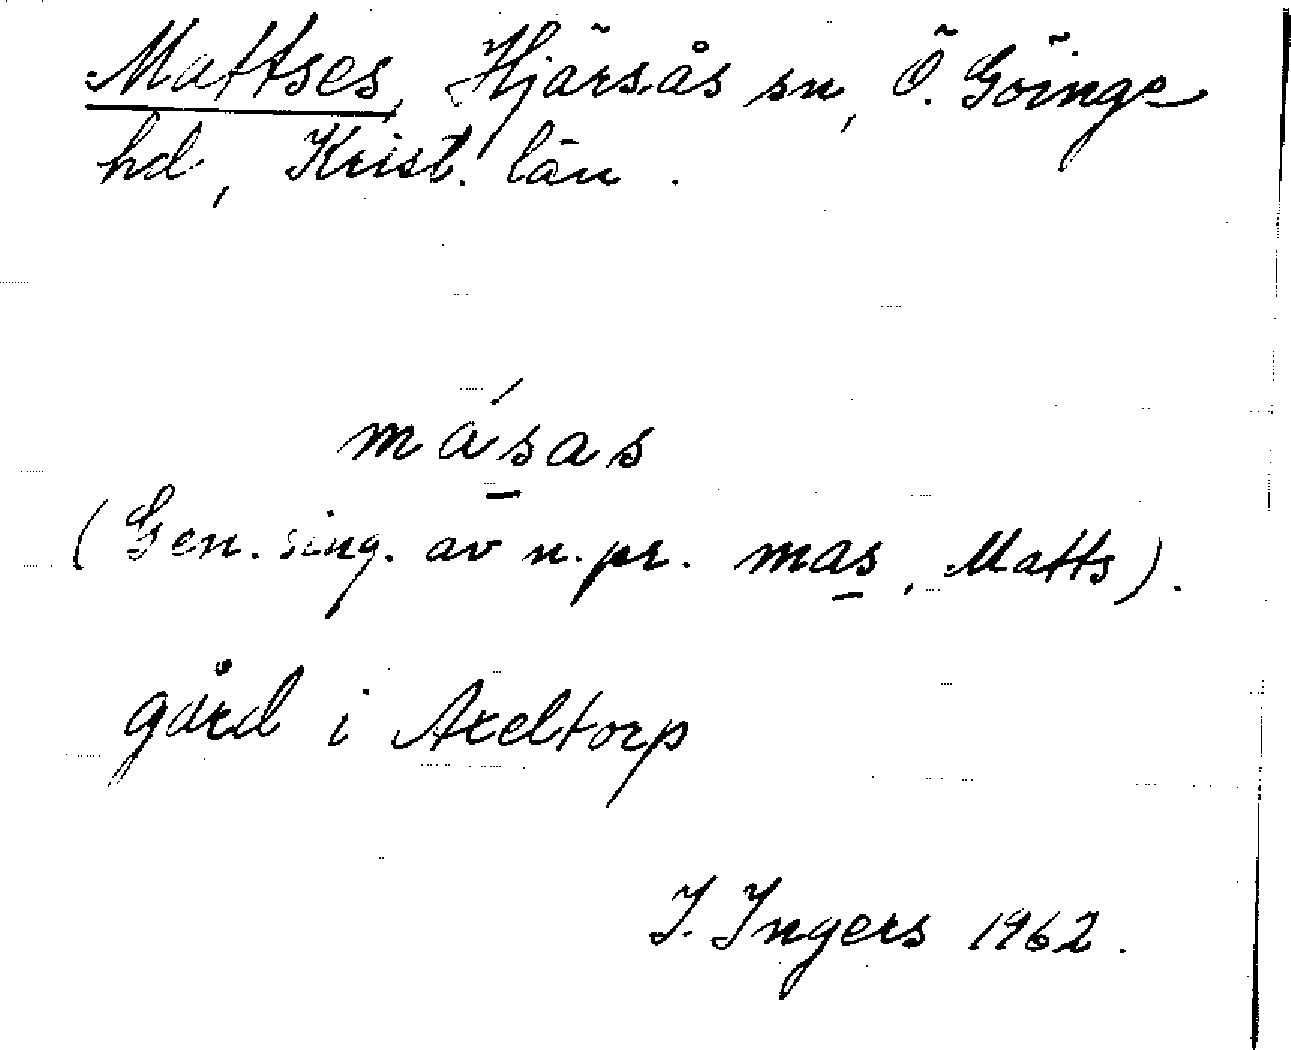 Mattses, Hjärsås sn, Ö. Göinge
hd, Krist. län.
má̱sas
(Gen. sing. av n. pr. mas̱, Matts).
gård i Axeltorp
I. Ingers 1962.